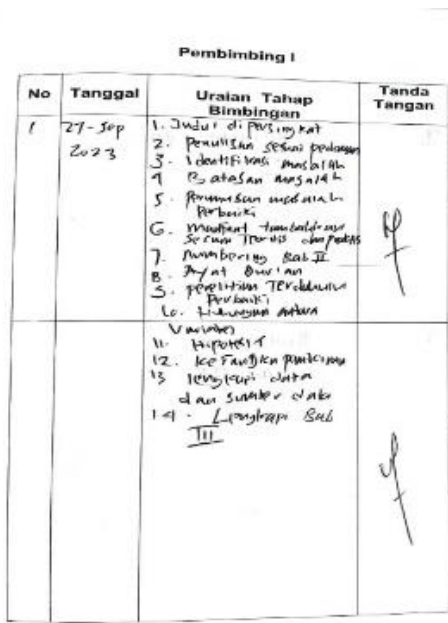 Pembimbing I
No Tanggal Uraian Tahap Bimbingan Tanda Tangan
1 27-Sep 2023
1. Judul dipersingkat
2. Penulisan sesuai pedoman
3. Identifikasi masalah
4 Batasan masalah
5. Perumusan masalah
Perbaiki
6. Manfaat tambahkan
secara Teoritis dan praktis
7. Numbering Bab II
8. Ayat Qur'an
9. penelitian Terdahulu
Perbaiki
10. Hubungan Antara
Variabel
11. Hipotesis
12. Kerangka pemikiran
13 lengkapi data
dan sumber data
14. Lengkapi Bab
III